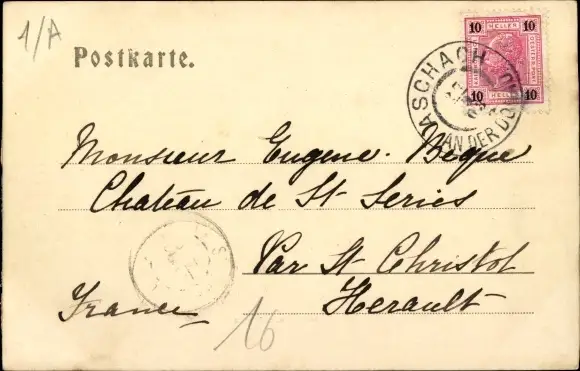 1/A
Postkarte.
10 HELLER 10
10 HELLER 10
ASCHACH
AN DER DO
Monsieur Eugene. Beque
Chateau de St Series
Par St Christol
Herault
France
16